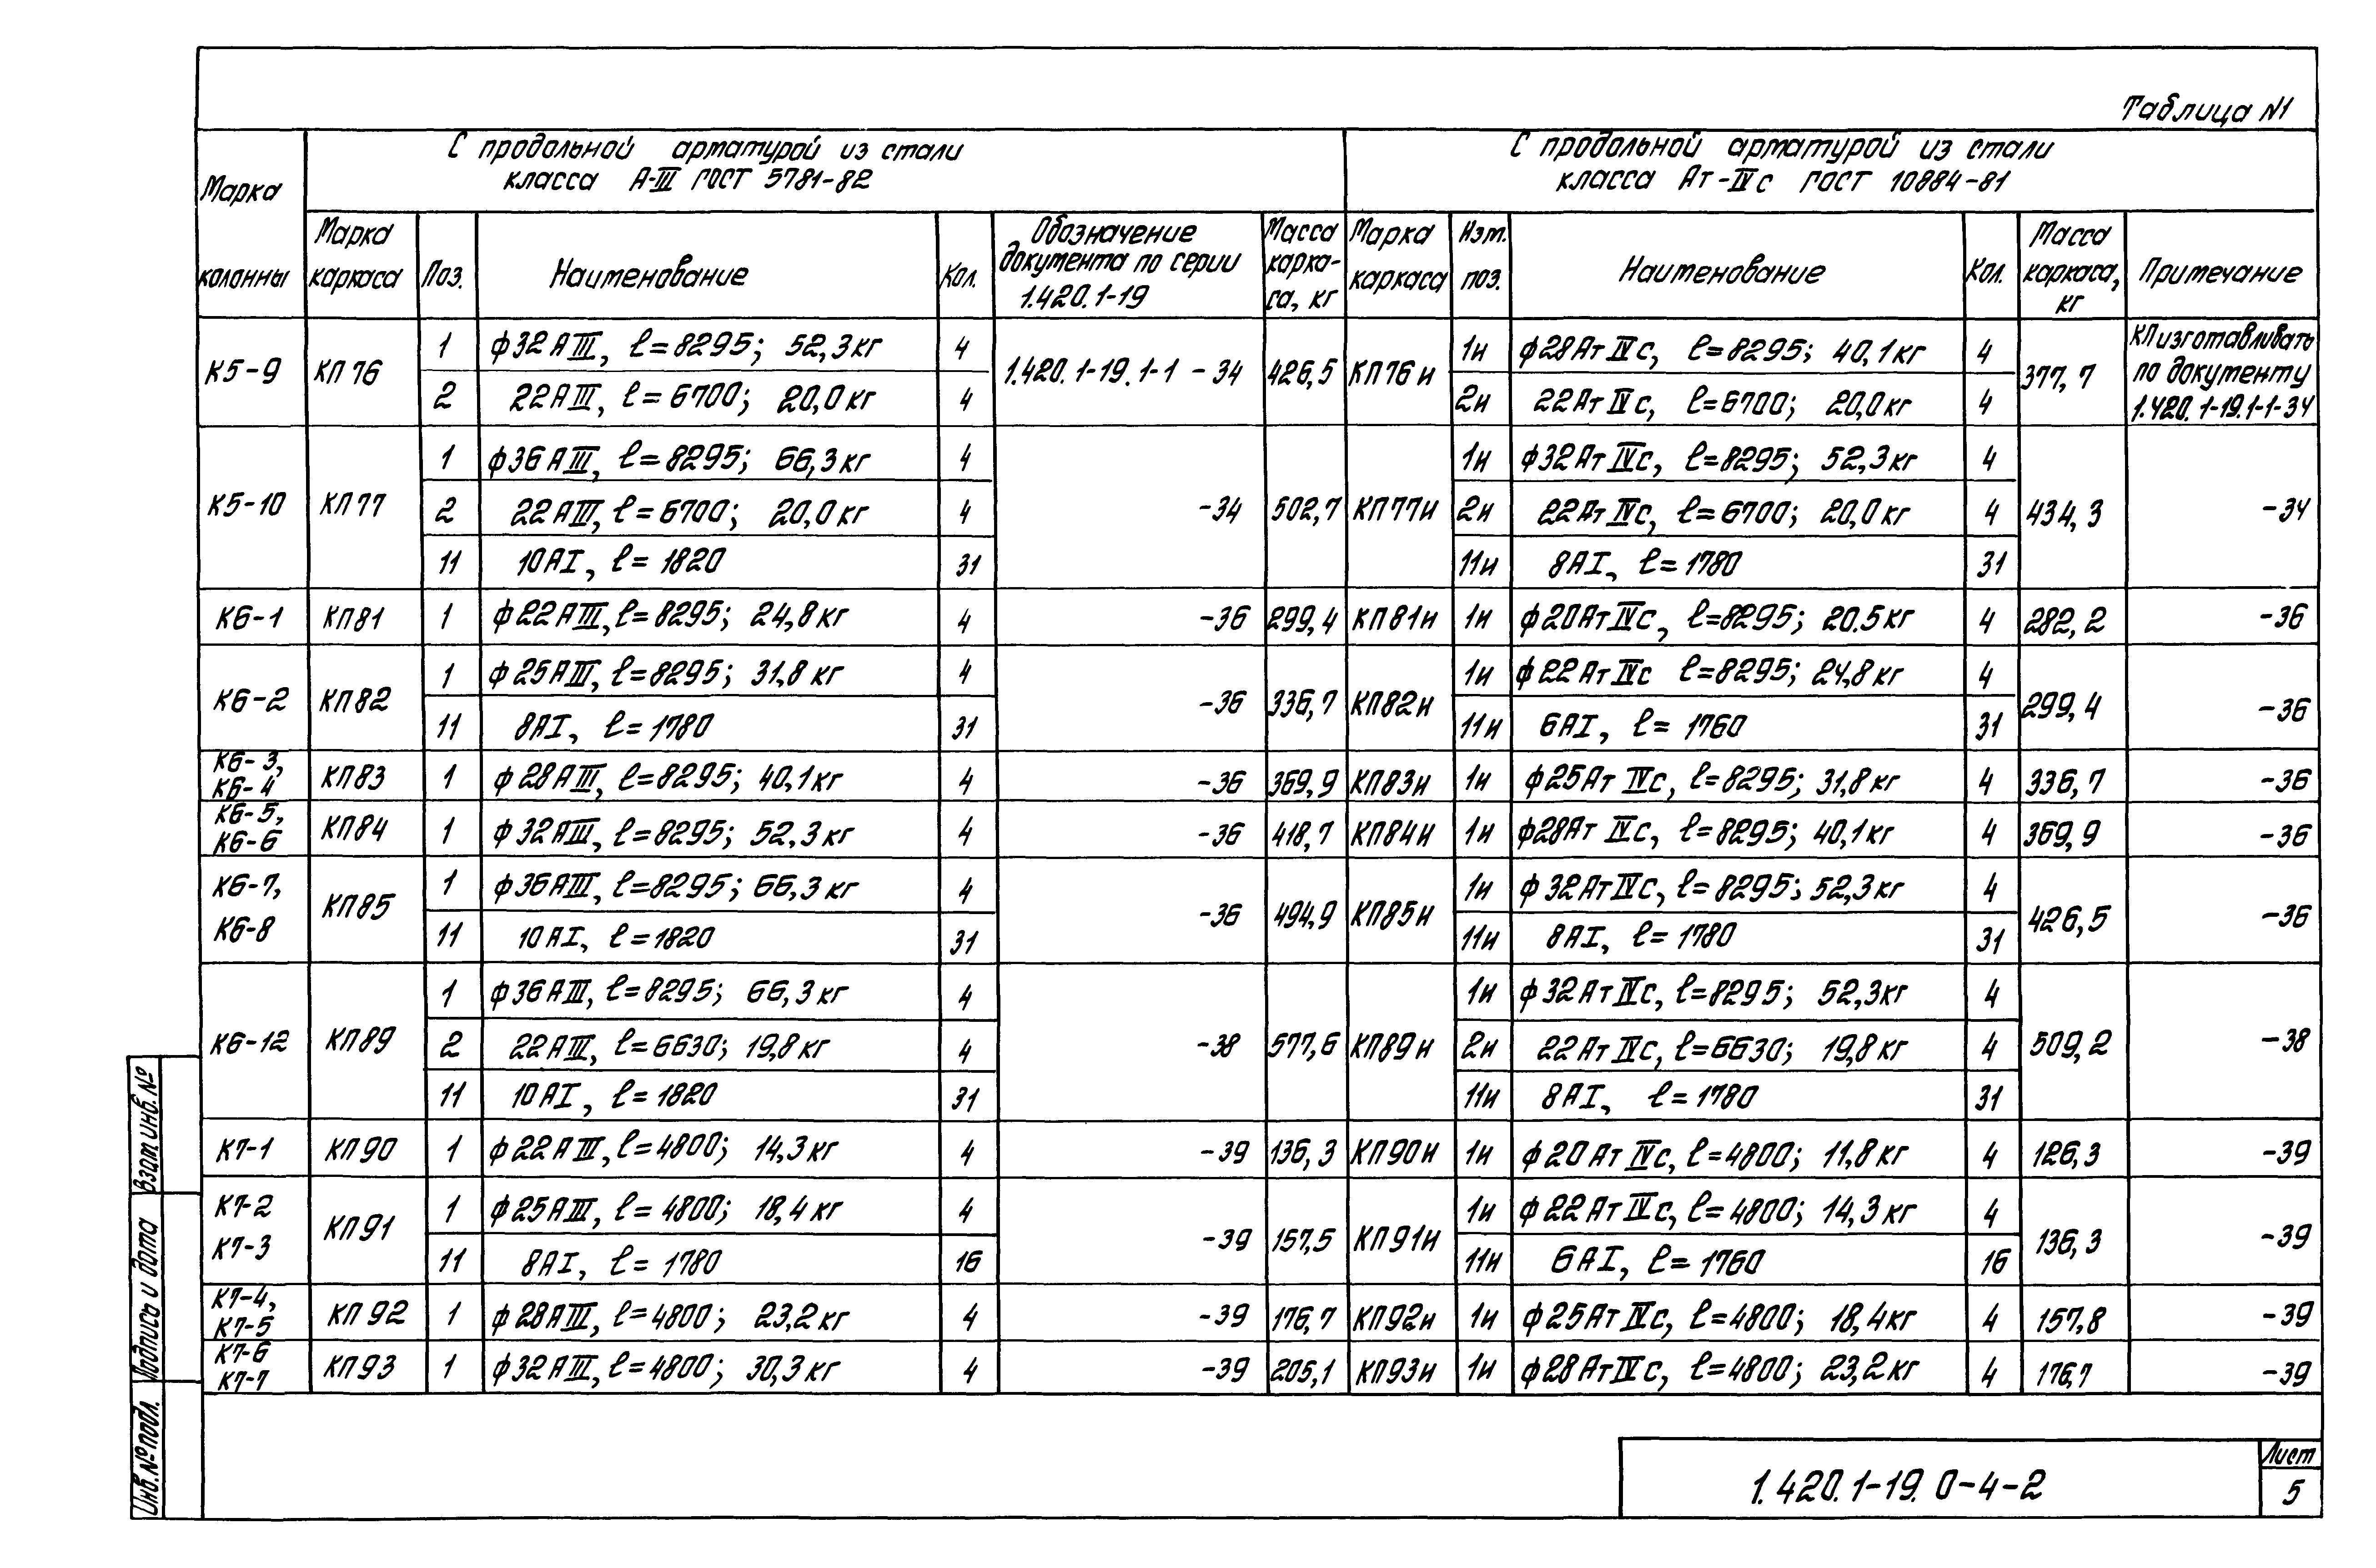 Таблица N1
Марка колонны
С продольной арматурой из стали
класса А-III ГОСТ 5781-82
С продольной арматурой из стали
класса Ат-IVс ГОСТ 10884-81
Марка каркаса
Поз.
Наименование
Кол.
Обозначение
документа по серии
1.420.1-19
Масса
карка-
са, кг
Марка
каркаса
Изм.
поз.
Наименование
Кол.
Масса
каркаса,
кг
Примечание
К5-9 КП76 1.420.1-19.1-1-34 426,5 КП76и 377,7
КП изготавливать
по документу
1.420.1-19.1-1-34
1 ф32АIII, ℓ=8295; 52,3кг 4 1и ф28АтIVс, ℓ=8295; 40,1кг 4
2 22АIII, ℓ=6700; 20,0кг 4 2и 22АтIVс, ℓ=6700; 20,0кг 4
К5-10 КП77 -34 502,7 КП77и 434,3 -34
1 ф36АIII, ℓ=8295; 66,3кг 4 1и ф32АтIVс, ℓ=8295; 52,3кг 4
2 22АIII, ℓ=6700; 20,0кг 4 2и 22АтIVс, ℓ=6700; 20,0кг 4
11 10АI, ℓ=1820 31 11и 8АI, ℓ=1780 31
К6-1 КП81 1 ф22АIII, ℓ=8295; 24,8кг 4 -36 299,4 КП81и 1и ф20АтIVс, ℓ=8295; 20.5кг 4 282,2 -36
К6-2 КП82 -36 336,7 КП82и 299,4 -36
1 ф25АIII, ℓ=8295; 31,8кг 4 1и ф22АтIVс ℓ=8295; 24,8кг 4
11 8АI, ℓ=1780 31 11и 6АI, ℓ=1760 31
К6-3,
К6-4
КП83 1 ф28АIII, ℓ=8295; 40,1кг 4 -36 369,9 КП83и 1и ф25АтIVс, ℓ=8295; 31,8кг 4 336,7 -36
К6-5,
К6-6
КП84 1 ф32АIII, ℓ=8295; 52,3кг 4 -36 418,7 КП84и 1и ф28АтIVс, ℓ=8295; 40,1кг 4 369,9 -36
К6-7,
К6-8
КП85 -36 494,9 КП85и 426,5 -36
1 ф36АIII, ℓ=8295; 66,3кг 4 1и ф32АтIVс, ℓ=8295; 52,3кг 4
11 10АI, ℓ=1820 31 11и 8АI, ℓ=1780 31
К6-12 КП89 -38 577,6 КП89и 509,2 -38
1 ф36АIII, ℓ=8295; 66,3кг 4 1и ф32АтIVс, ℓ=8295; 52,3кг 4
2 22АIII, ℓ=6630; 19,8кг 4 2и 22АтIVс, ℓ=6630; 19,8кг 4
11 10АI, ℓ=1820 31 11и 8АI, ℓ=1780 31
К7-1 КП90 1 ф22АIII, ℓ=4800; 14,3кг 4 -39 136,3 КП90и 1и ф20АтIVс, ℓ=4800; 11,8кг 4 126,3 -39
К7-2
К7-3
КП91 -39 157,5 КП91и 136,3 -39
1 ф25АIII, ℓ=4800; 18,4кг 4 1и ф22АтIVс, ℓ=4800; 14,3кг 4
11 8АI, ℓ=1780 16 11и 6АI, ℓ=1760 16
К7-4,
К7-5
КП92 1 ф28АIII, ℓ=4800; 23,2кг 4 -39 176,7 КП92и 1и ф25АтIVс, ℓ=4800; 18,4кг 4 157,8 -39
К7-6
К7-7
КП93 1 ф32АIII, ℓ=4800; 30,3кг 4 -39 205,1 КП93и 1и ф28АтIVс, ℓ=4800; 23,2кг 4 176,7 -39
Взам.инв.№
Подпись и дата
Инв.№подл.
1.420.1-19.0-4-2
Лист
5